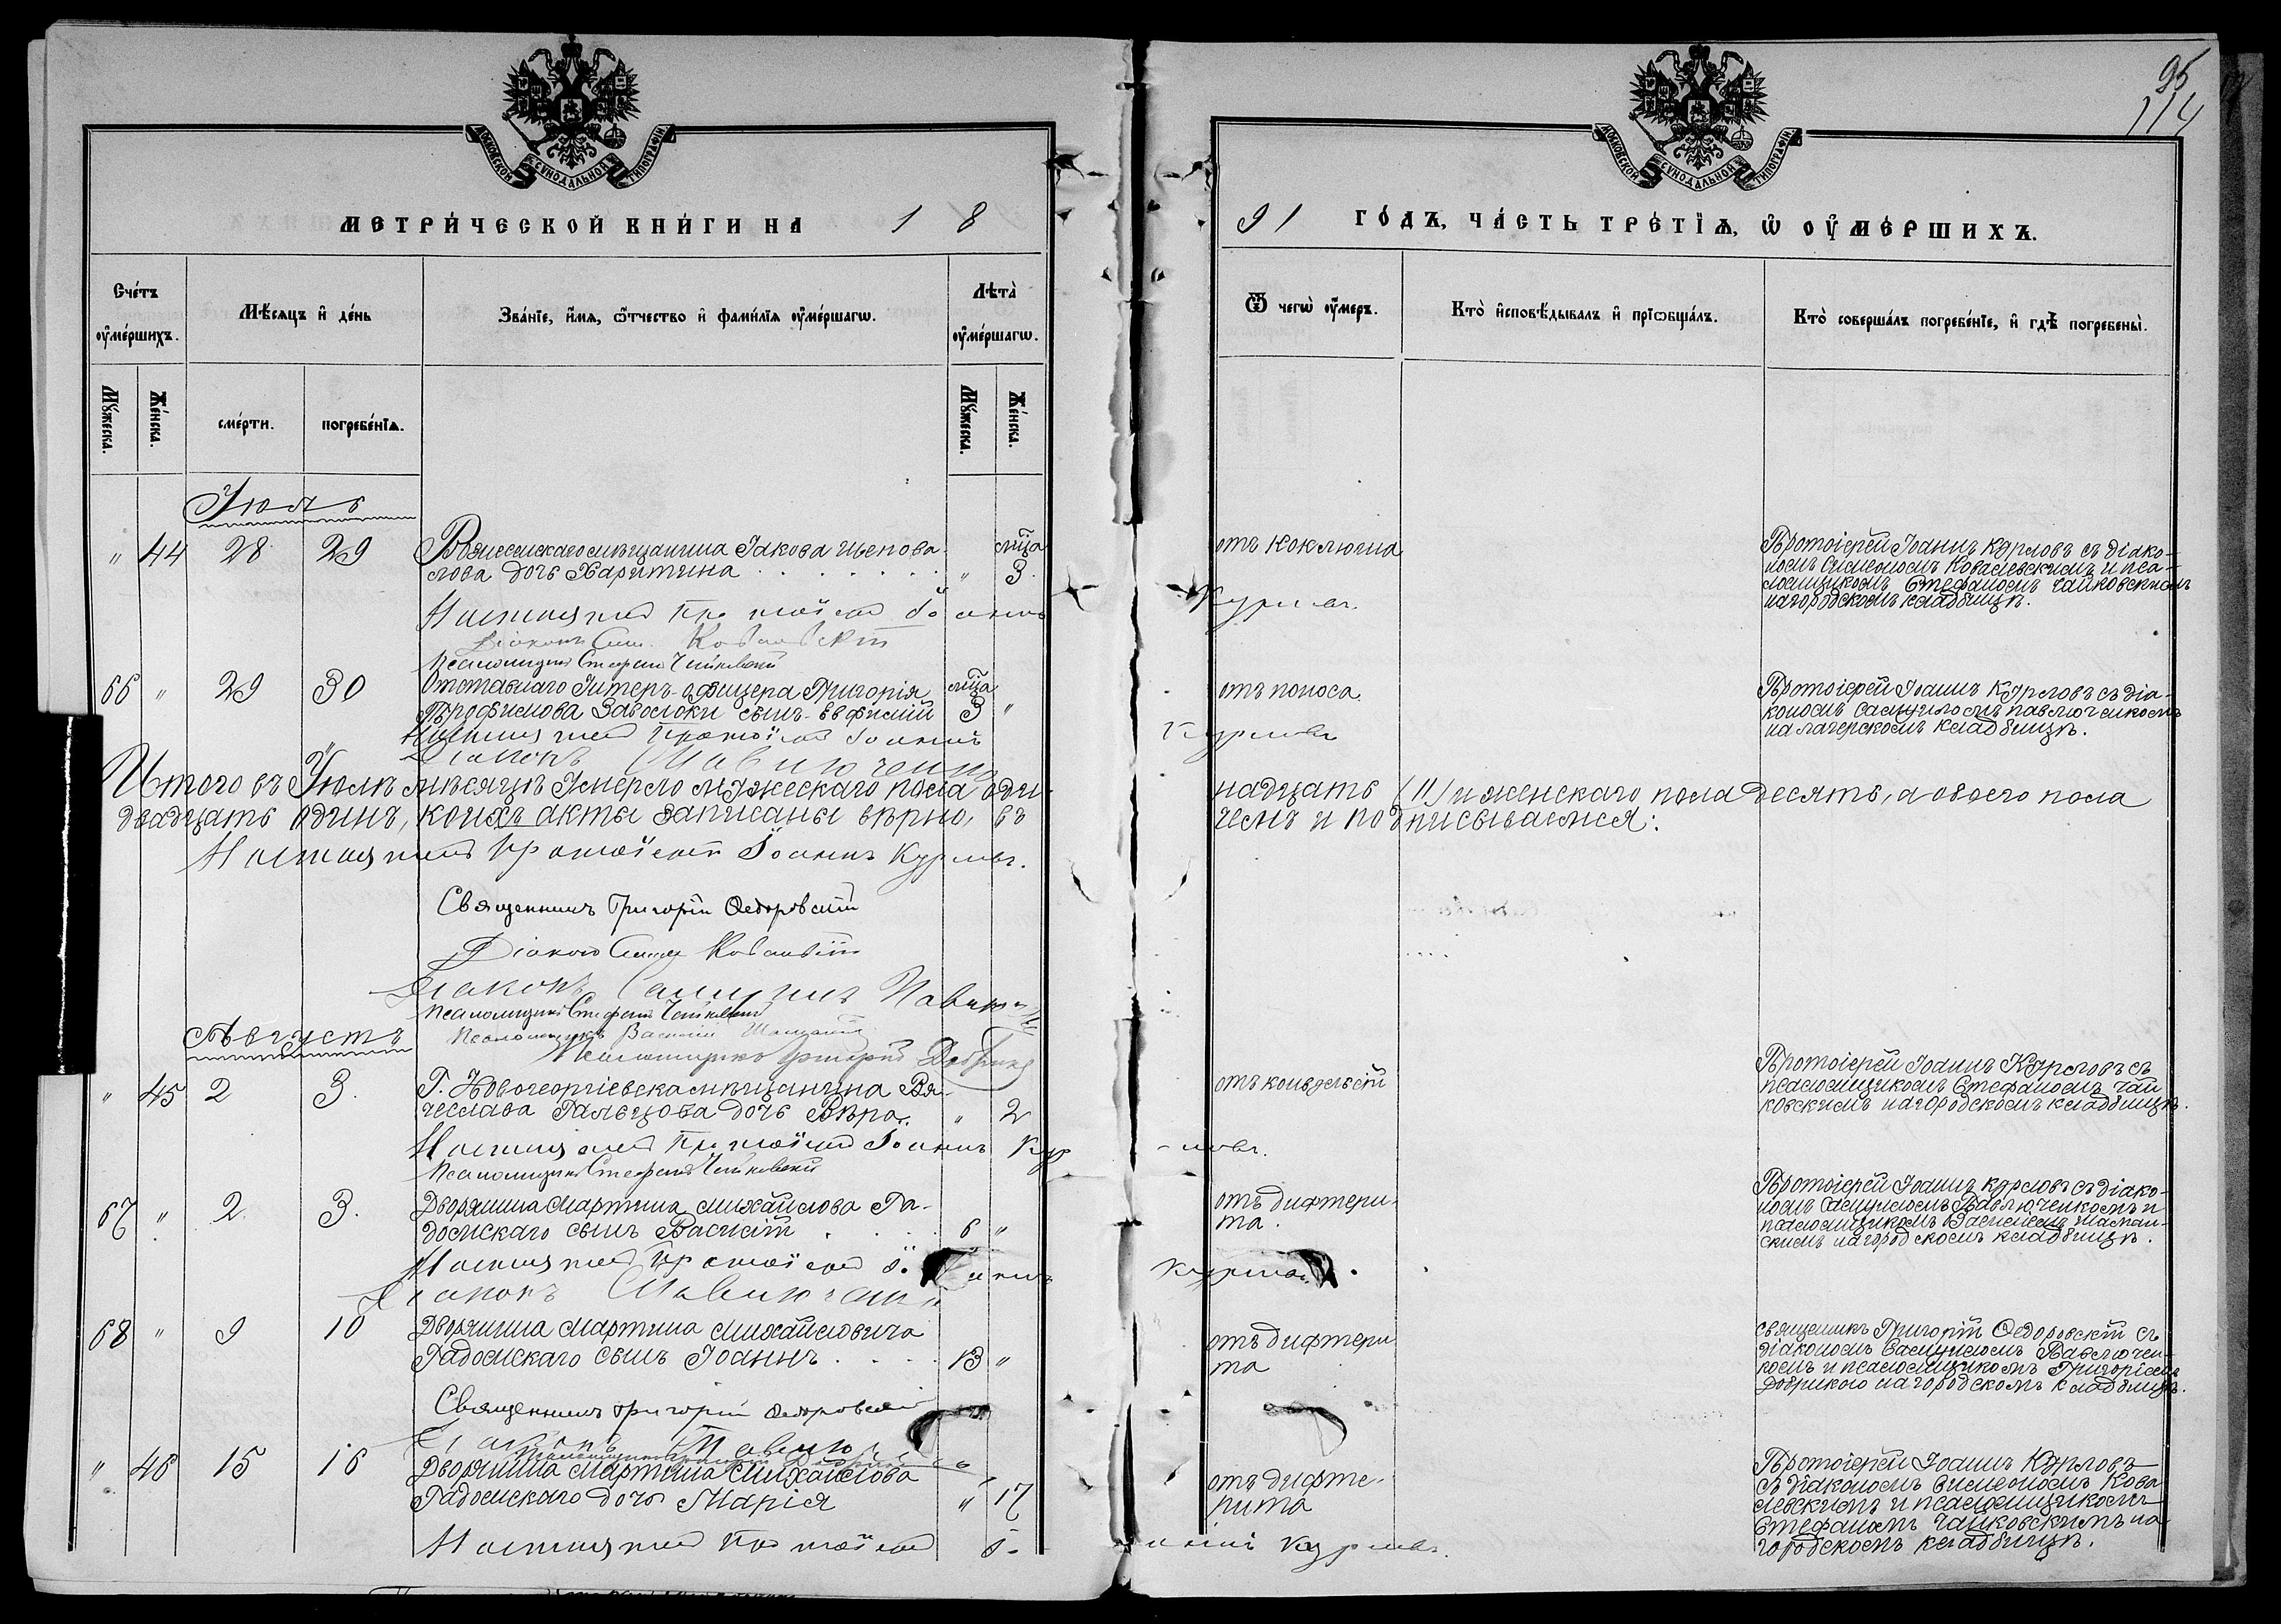 95
114
МОСКОВСКОЙ СѴНОДАЛЬНОЙ ТИПОГРАФІИ
МОСКОВСКОЙ СѴНОДАЛЬНОЙ ТИПОГРАФІИ
МЕТРИ́ЧЕСКОЙ КНИ́ГИ НА 1 8
91 ГО́ДЪ, ЧА́СТЬ ТРЕ́ТІѦ, Ѡ҆ ОУ҆МЕ́РШИХЪ.
Сче́тъ оу҆ме́ршихъ.
Мѣ́сяцъ и҆ де́нь
Зва́нїе, и҆́мя, ѻ҆́тчество и҆ фами́лїя оу҆ме́ршагѡ.
Лѣта̀ оу҆ме́ршагѡ.
Ѿ чегѡ̀ оу҆́меръ.
Кто̀ и҆сповѣ́дывалъ и҆ прїѡбща́лъ.
Кто̀ соверша́лъ погребе́нїе, и҆ гдѣ̀ погребены̀.
Мꙋ́жеска.
Же́нска.
сме́рти.
погребе́нїѧ.
Мꙋ́жеска.
Же́нска.
Іюль
" 44 28 29 Вознесенскаго мѣщанина Іакова
лова дочь Харитина " 3
отъ коклюша
Протоіерей Іоаннъ Курловъ съ діако-
номъ Симеономъ Ковалевскимъ и пса-
ломщикомъ Стефаномъ Чайковскимъ
на городскомъ кладбищѣ.
Настоятель Протоіерей Іоаннъ Курловъ.
Діаконъ Сим. Ковалевскій
Псаломщикъ Стефанъ Чайковскій
66 " 29 30 Отставнаго Унтеръ-офицера Григорія
Трофимова Заволоки сынъ Евфимій 3 "
отъ поноса
Протоіерей Іоаннъ Курловъ съ діа-
кономъ Самуиломъ Павлюченкомъ
на лагерскомъ кладбищѣ.
Настоятель Протоіерей Іоаннъ Курловъ
Діаконъ Павлюченко
Итого въ Іюлѣ мѣсяцѣ Умерло мужескаго пола оди-надцать (11) и женскаго пола десять, а обоего пола
двадцать одинъ, коихъ акты записаны вѣрно, въ чемъ и подписываемся:
Настоятель Протоіерей Іоаннъ Курловъ.
Священникъ Григорій Ѳедоровскій
Діаконъ Сим. Ковалевскій
Діаконъ Самуилъ Павлюченко
Псаломщикъ Стефанъ Чайковскій
Псаломщикъ Василій
Псаломщикъ Григорій
Августъ
" 45 2 3. Г. Новогеоргіевска мѣщанина Вя-
чеслава Гальцова дочь Вѣра. " 2
отъ конвульсій
Протоіерей Іоаннъ Курловъ съ
псаломщикомъ Стефаномъ Чай
ковскимъ на городскомъ кладбищѣ.
Настоятель Протоіерей Іоаннъ Кур-ловъ.
Псаломщикъ Стефанъ Чайковскій
67 " 2. 3. Дворянина Мартина Михайлова Га-
домскаго сынъ Василій 6 "
отъ дифтери-
та.
Протоіерей Іоаннъ Курловъ съ діако-
номъ Самуиломъ Павлюченкомъ и
псаломщикомъ Василіемъ
скимъ на городскомъ кладбищѣ.
Настоятель Протоіерей Іоаннъ Курловъ.
Діаконъ Павлюченко
68 " 9 10 Дворянина Мартина Михайловича
Гадомскаго сынъ Іоаннъ 13 "
отъ дифтери
та
Священикъ Григорій Ѳедоровскій съ
діакономъ Самуиломъ Павлючен-
комъ и псаломщикомъ Григоріемъ
на городскомъ кладбищѣ.
Священникъ Григорій Ѳедоровскій
Діаконъ Павлюч
" 46 15 16 Дворянина Мартина Михайлова
Гадомскаго дочь Марія " 17
отъ дифте-
рита
Протоіерей Іоаннъ Курловъ
съ діакономъ Симеономъ Кова
левскимъ и псаломщикомъ
Стефаномъ Чайковскимъ на
городскомъ кладбищѣ.
Настоятель Протоіерей Іоаннъ Курловъ.